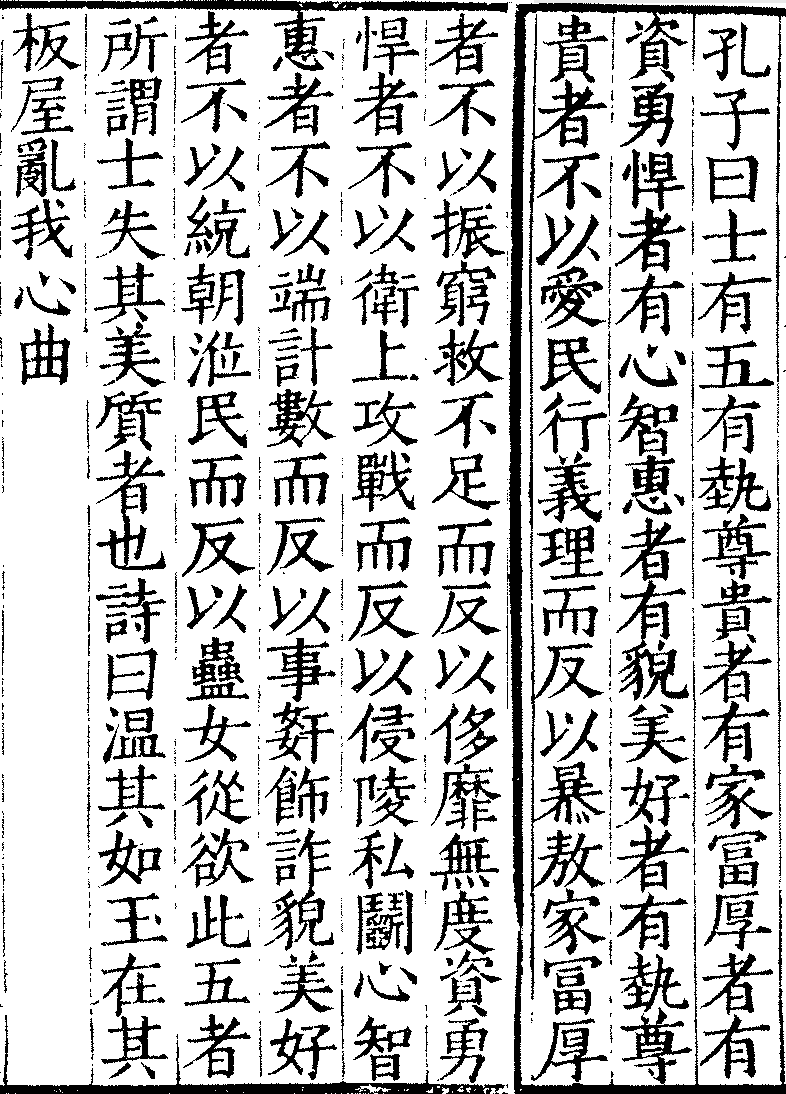 孔子曰士有五有埶尊貴者有家冨厚者有
資勇悍者有心智惠者有貌美好者有埶尊
貴者不以愛民行義理而反以暴敖家冨厚
者不以振窮救不足而反以侈靡無度資勇
悍者不以衛上攻戰而反以侵陵私鬭心智
惠者不以端計數而反以事姧飾詐貌美好
者不以統朝涖民而反以蠱女從欲此五者
所謂士失其美質者也詩曰温其如玉在其
板屋亂我心曲